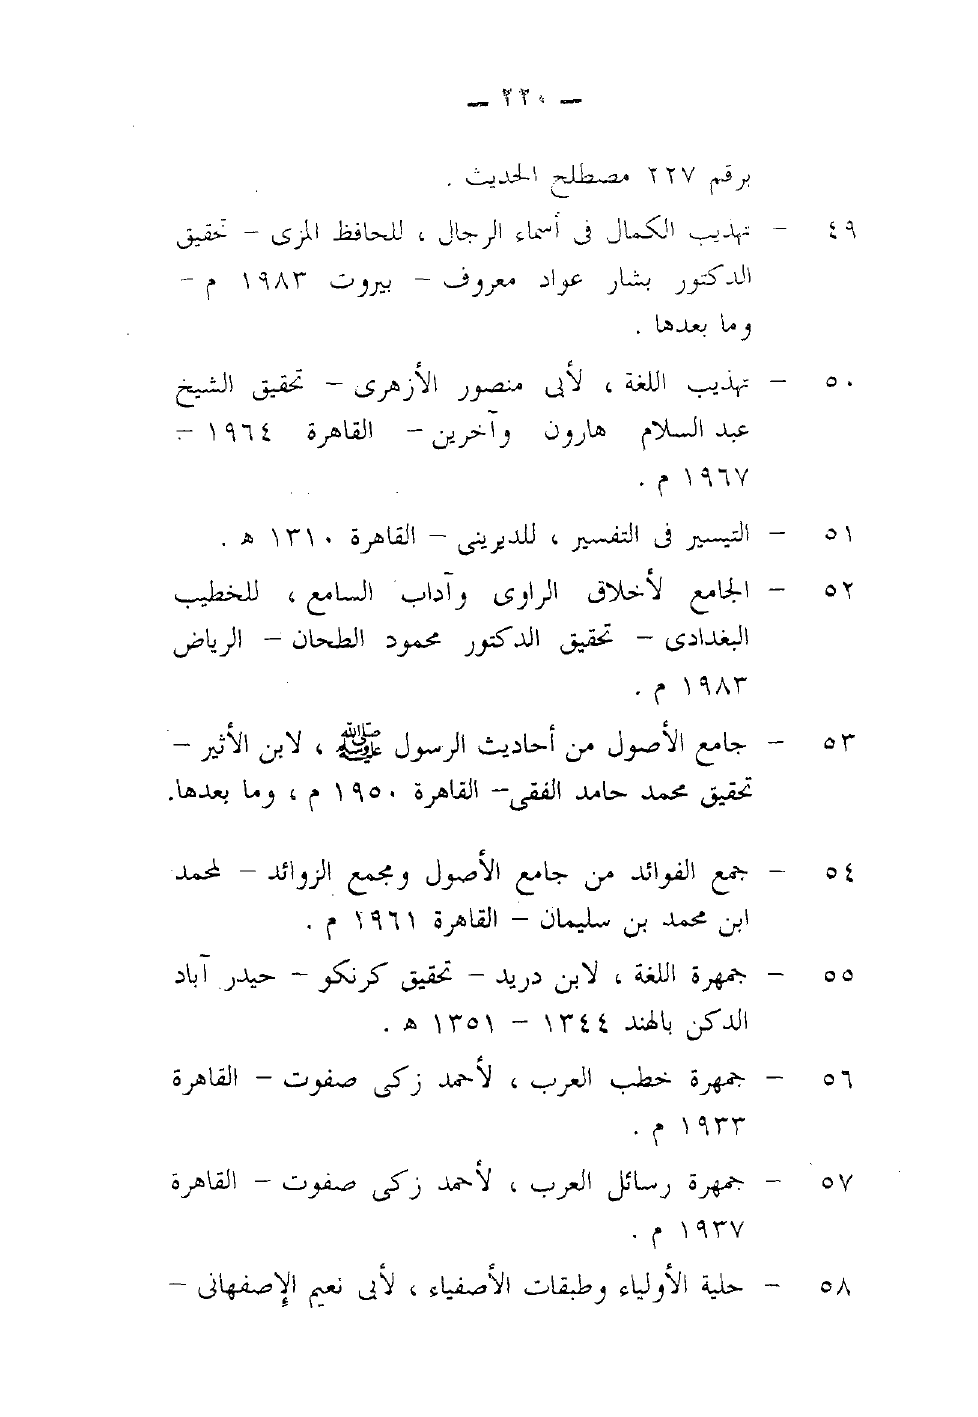 — ٢٢٠ —
برقم ٢٢٧ مصطلح الحديث .
٤٩ – تهذيب الكمال فى أسماء الرجال ، للحافظ المزى – تحقيق
الدكتور بشار عواد معروف – بيروت ١٩٨٣ م –
وما بعدها .
٥٠ – تهذيب اللغة ، لأبى منصور الأزهرى – تحقيق الشيخ
عبد السلام هارون وآخرين – القاهرة ١٩٦٤ –
١٩٦٧ م .
٥١ – التيسير فى التفسير ، للديرينى – القاهرة ١٣١٠ هـ .
٥٢ – الجامع لأخلاق الراوى وآداب السامع ، للخطيب
البغدادى – تحقيق الدكتور محمود الطحان – الرياض
١٩٨٣ م .
٥٣ – جامع الأصول من أحاديث الرسول ﷺ ، لابن الأثير –
تحقيق محمد حامد الفقى – القاهرة ١٩٥٠ م ، وما بعدها.
٥٤ – جمع الفوائد من جامع الأصول ومجمع الزوائد – لمحمد
ابن محمد بن سليمان – القاهرة ١٩٦١ م .
٥٥ – جمهرة اللغة ، لابن دريد – تحقيق كرنكو – حيدر آباد
الدكن بالهند ١٣٤٤ – ١٣٥١ هـ .
٥٦ – جمهرة خطب العرب ، لأحمد زكى صفوت – القاهرة
١٩٣٣ م .
٥٧ – جمهرة رسائل العرب ، لأحمد زكى صفوت – القاهرة
١٩٣٧ م .
٥٨ – حلية الأولياء وطبقات الأصفياء ، لأبى نعيم الإصفهانى –